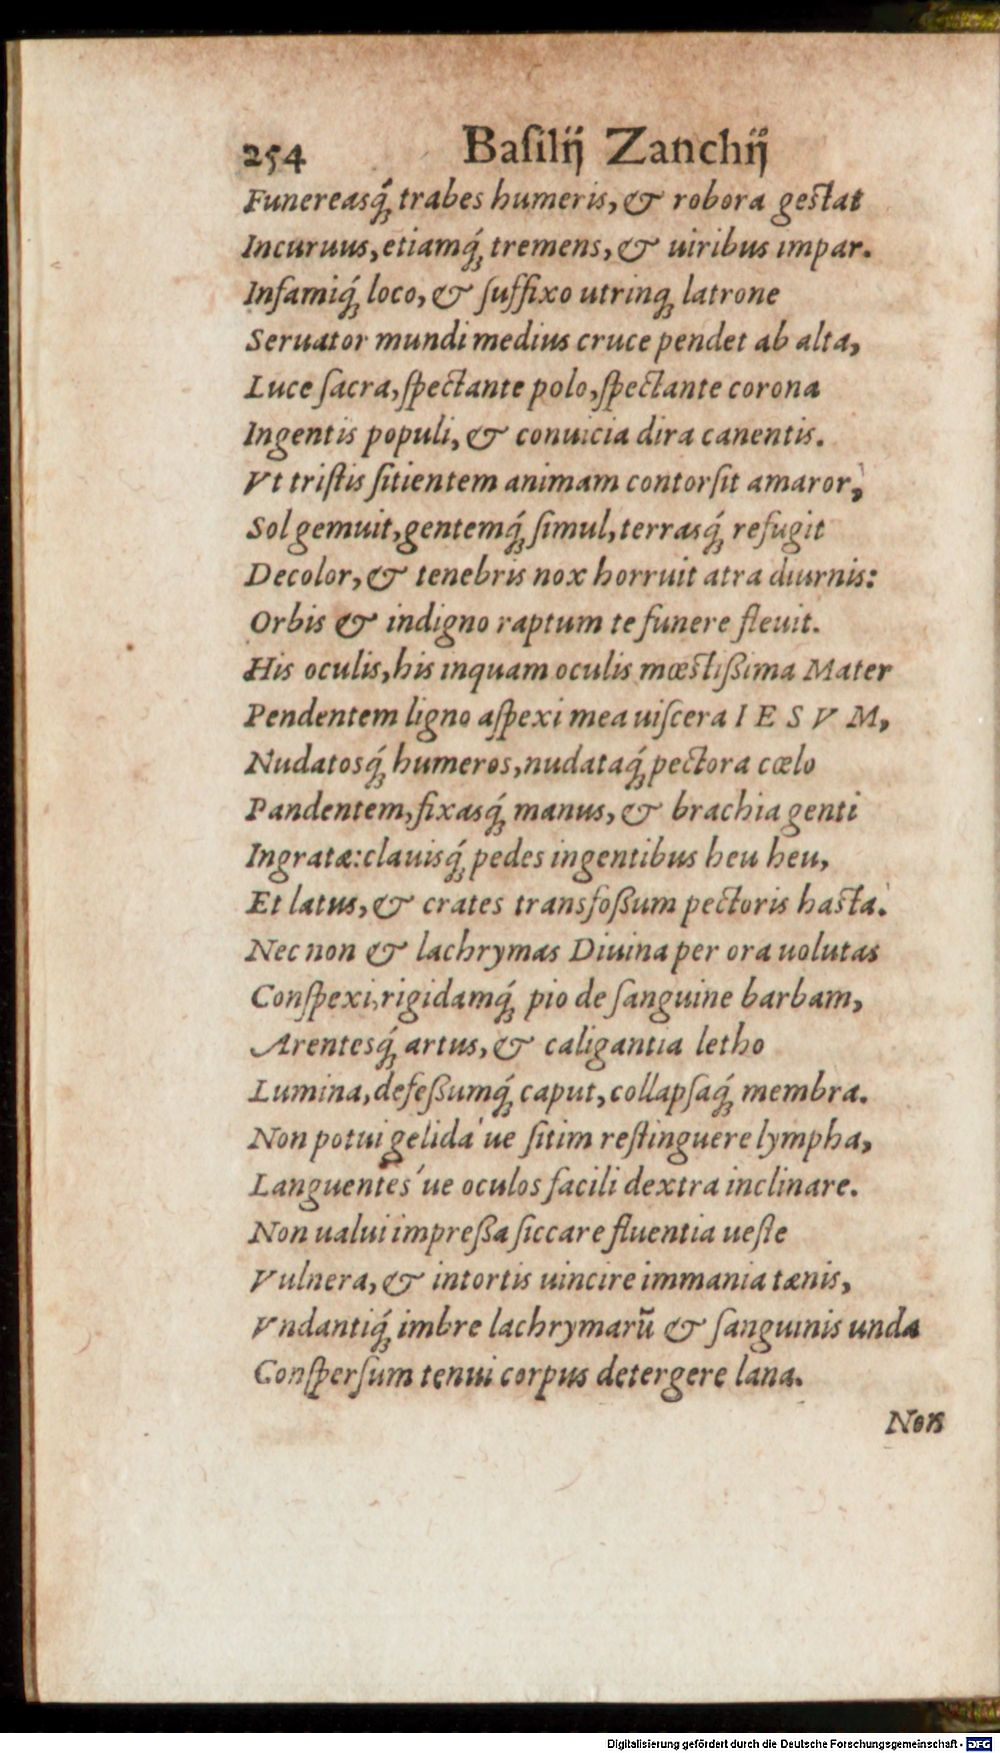 254 Baſilij Zanchij
Funereasq́; trabes humeris, & robora geſtat
Incuruus, etiamq́; tremens, & uiribus impar.
Infamiq́; loco, & ſuffixo utrinq; latrone
Seruator mundi medius cruce pendet ab alta,
Luce ſacra, ſpectante polo, ſpectante corona
Ingentis populi, & conuicia dira canentis.
Vt triſtis ſitientem animam contorſit amaror,
Sol gemuit, gentemq́; ſimul, terrasq́; refugit
Decolor, & tenebris nox horruit atra diurnis:
Orbis & indigno raptum te funere fleuit.
His oculis, his inquam oculis mœſtißima Mater
Pendentem ligno aſpexi mea uiſcera I E S V M,
Nudatosq́; humeros, nudataq́; pectora cœlo
Pandentem, fixasq́; manus, & brachia genti
Ingratæ: clauisq́; pedes ingentibus heu heu,
Et latus, & crates transfoßum pectoris haſta.
Nec non & lachrymas Diuina per ora uolutas
Conſpexi, rigidamq́; pio de ſanguine barbam,
Arentesq́; artus, & caligantia letho
Lumina, defeßumq́; caput, collapſaq́; membra.
Non potui gelida' ue ſitim reſtinguere lympha,
Languentes' ue oculos facili dextra inclinare.
Non ualui impreßa ſiccare fluentia ueſte
Vulnera, & intortis uincire immania tænis,
Vndantiq́; imbre lachrymarũ & ſanguinis unda
Conſperſum tenui corpus detergere lana.
Non
Digitalisierung gefördert durch die Deutsche Forschungsgemeinschaft - DFG